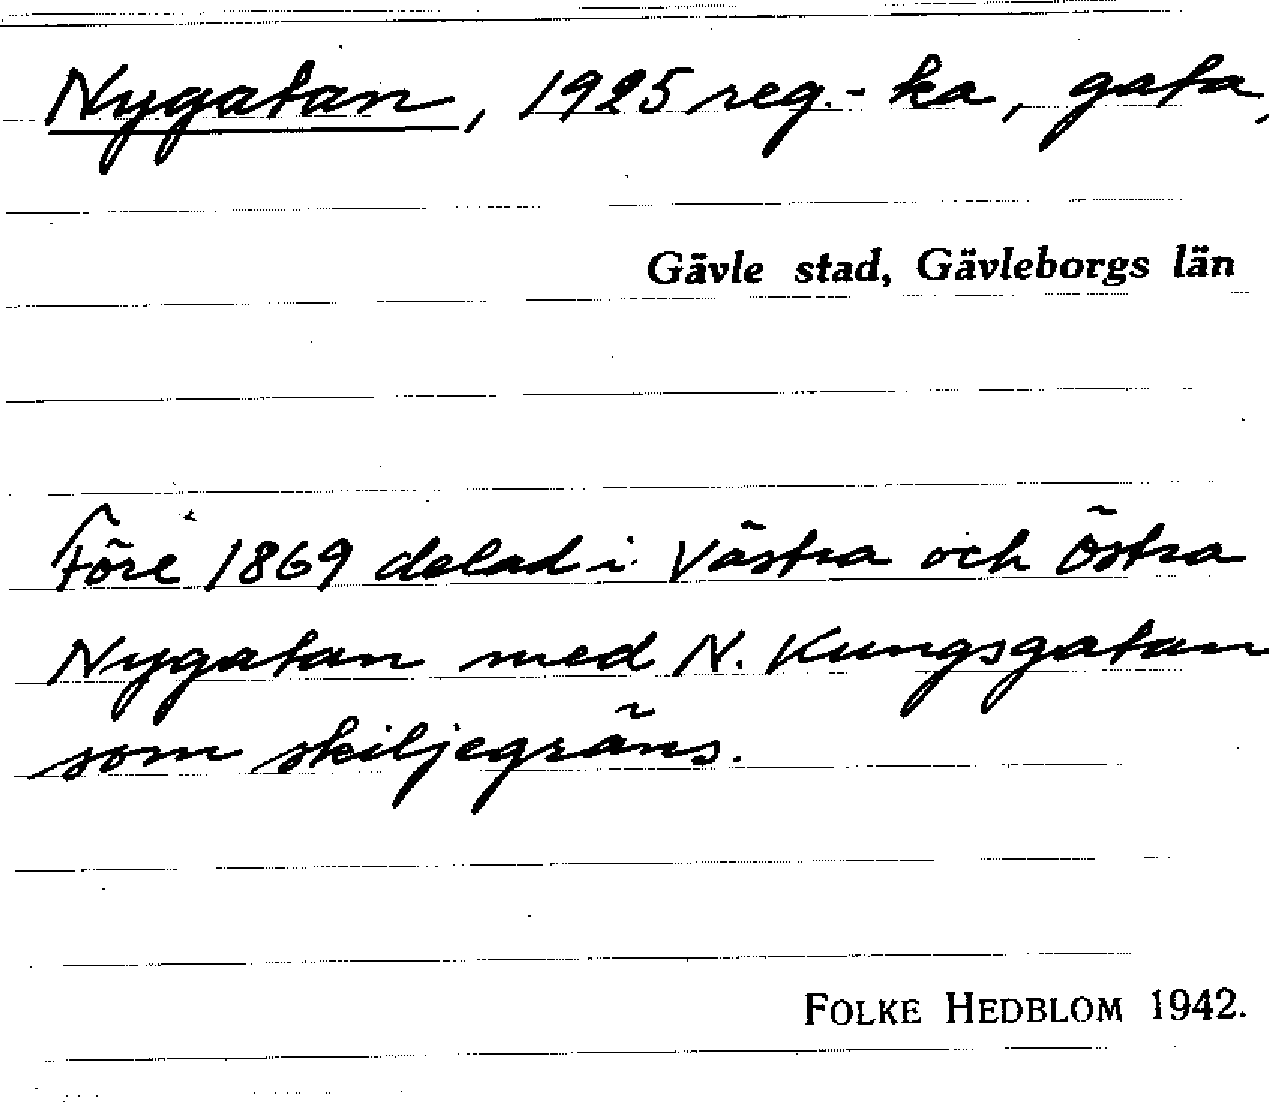 Nygatan, 1925 reg.-ka, gata,
Gävle stad, Gävleborgs län
Före 1869 delad i Västra och Östra
Nygatan med N. Kungsgatan
som skiljegräns.
FOLKE HEDBLOM 1942.